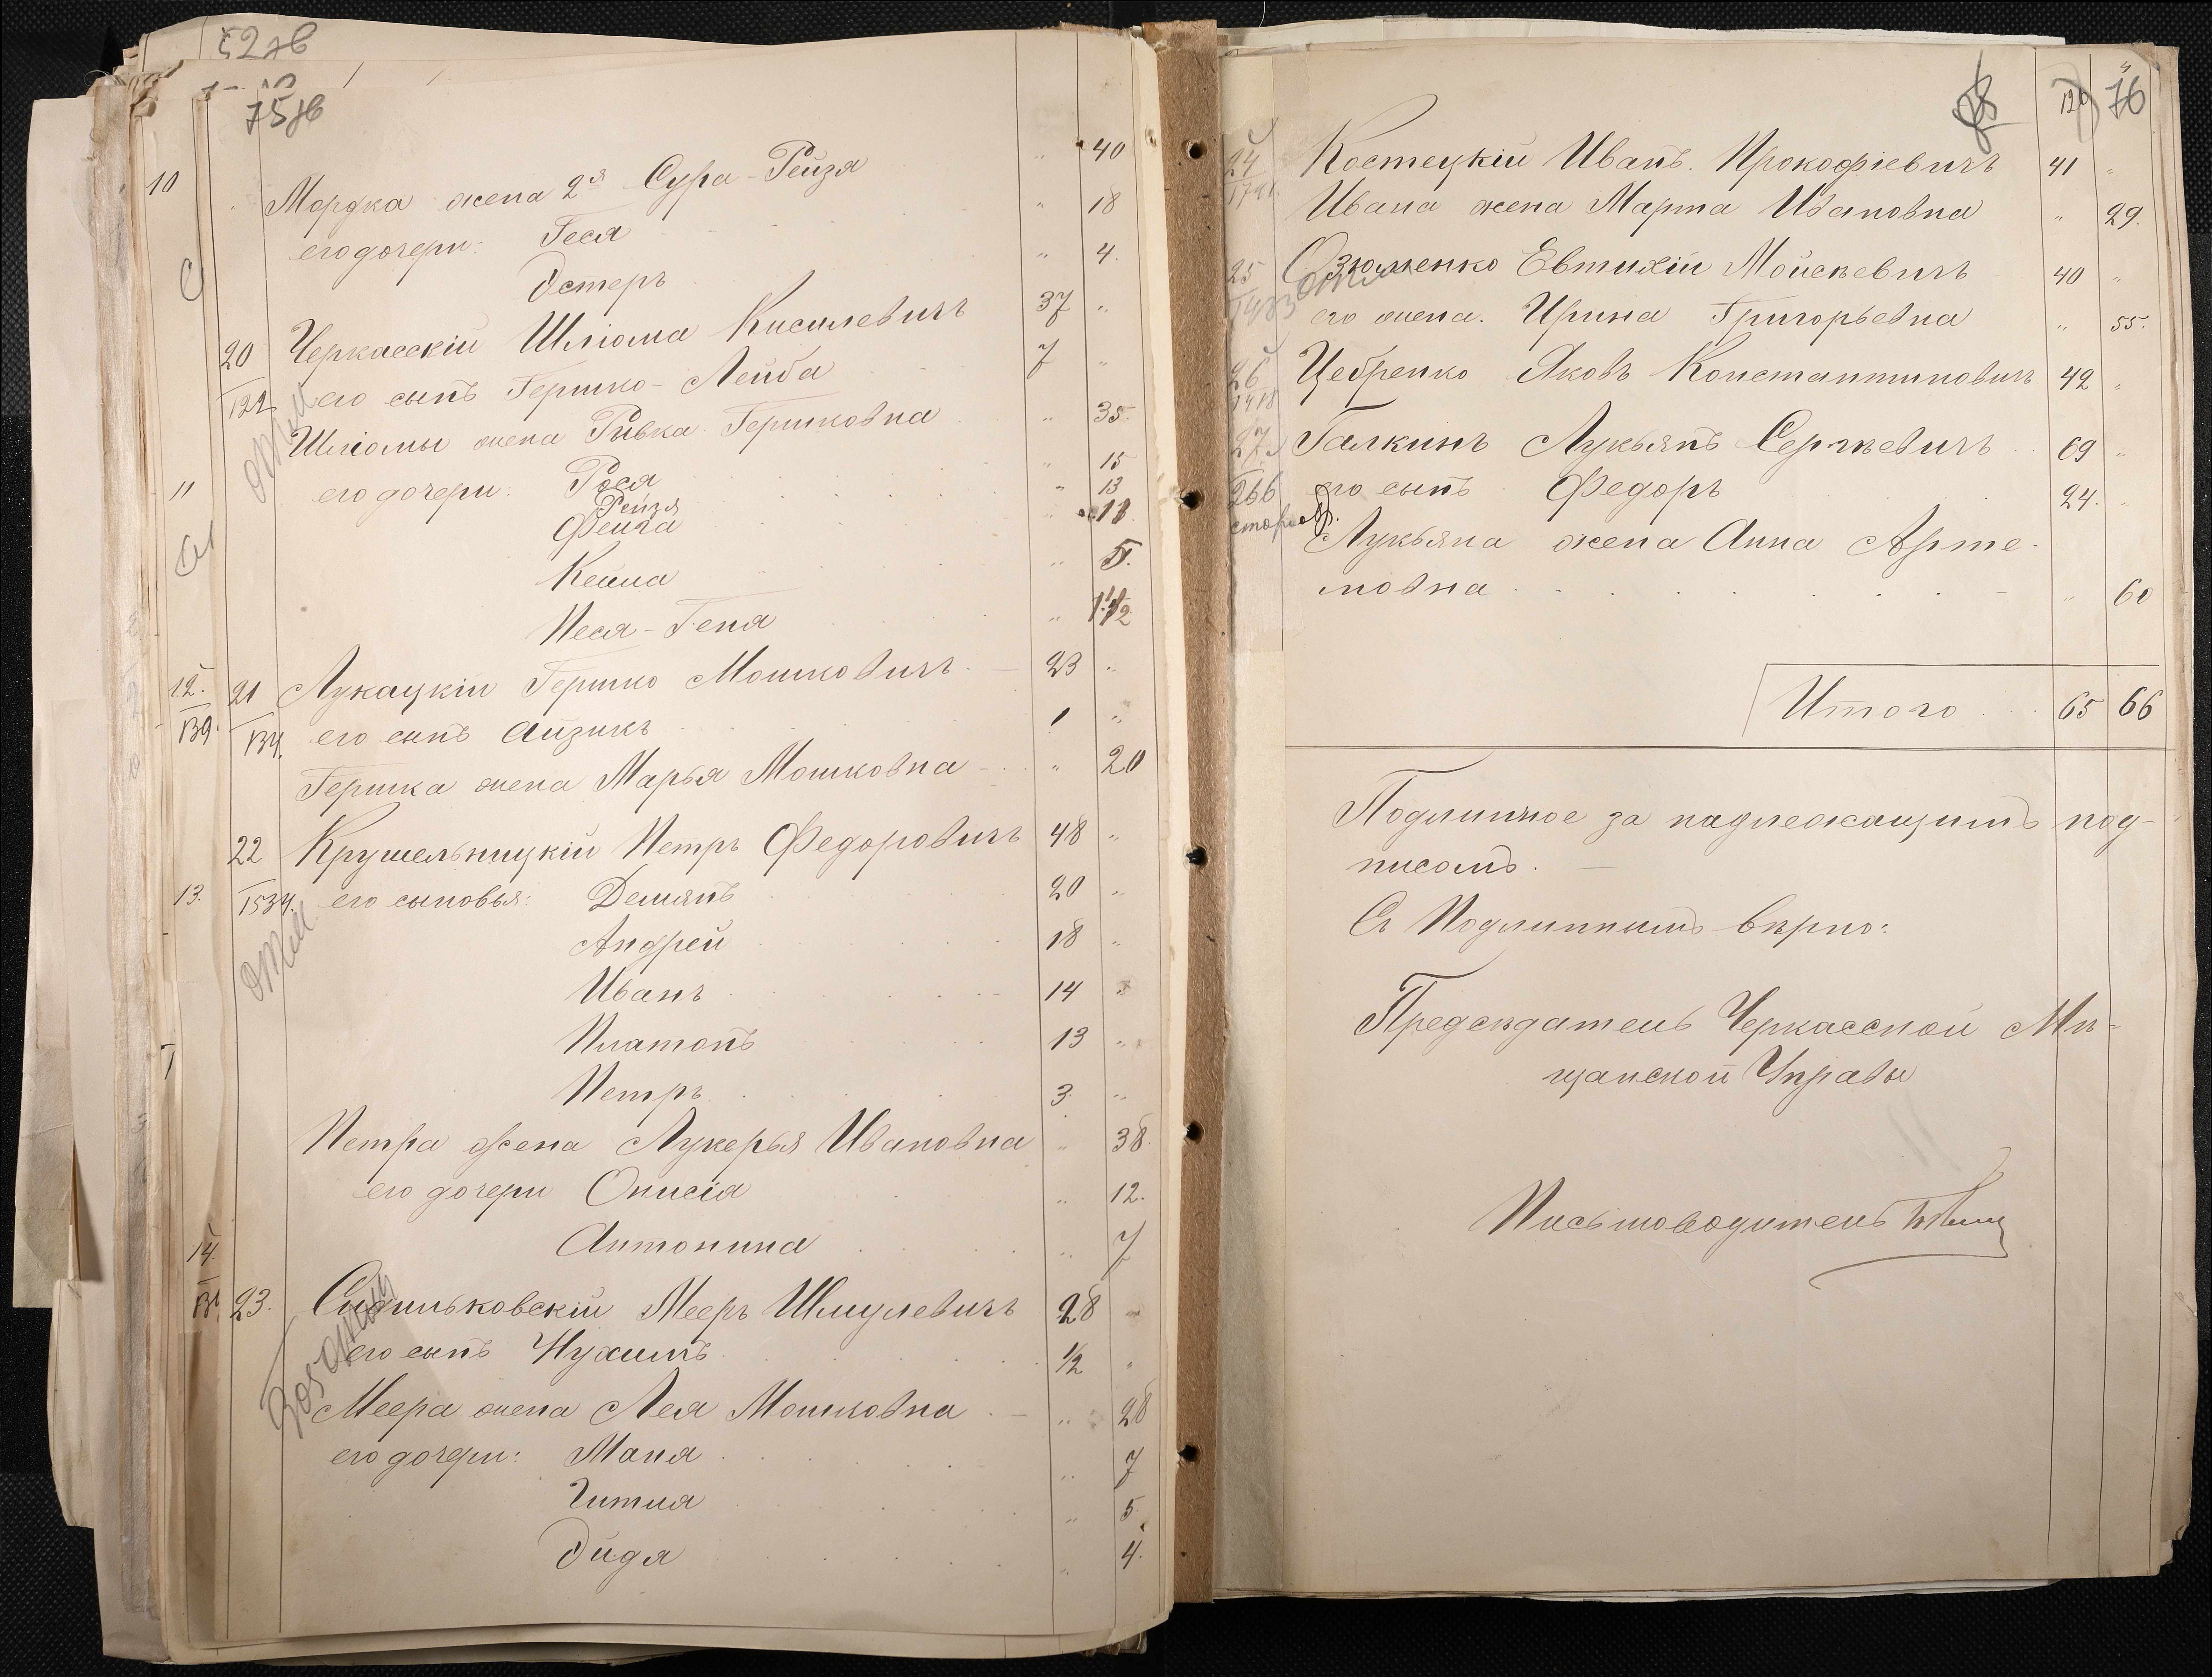 75 об
Мордка жена 2я Сура-Рейзя " 40
его дочери: Геся " 18
Эстеръ " 4.
20 Черкасскій Шліома Кисилевичъ 37 "
122 его сынъ Гершко-Лейба 7 "
Шліомы жена Ривка Гершковна " 35.
его дочери: Рося " 15
Рейзя " 13
Фейга " 13
Кейла " 5.
Песя-Геня " 1 1/2
21 Лукацкій Гершко Мошковичъ 23 "
134. его сынъ Айзикъ 1 "
Гершка жена Марья Мошковна " 20
22 Крушельницкій Петръ Федоровичъ 48 "
1534. его сыновья: Демянъ 20 "
Андрей 18 "
Иванъ 14 "
Платонъ 13 "
Петръ 3. "
Петра жена Лукерья Ивановна " 38.
его дочери Онисія " 12.
Антонина " 7
23. Мееръ Шмулевичъ 28 "
его сынъ Нухимъ 1/2 "
Меера жена Лея Мошковна " 28
его дочери: Маня " 7
Гитля " 5.
Эйдя " 4.
76
24 Костецкій Иванъ Прокофіевичъ 41 "
Ивана жена Марта Ивановна " 29.
25 Озюменко Евтихій Мойсѣевичъ 40 "
его жена. Ирина Григорьевна " 55.
26 Цебренко Яковъ Константиновичъ 42 "
1418
27 Галкинъ Лукьянъ Сергѣевичъ 69 "
266 его сынъ Федоръ 24. "
старообр.
Лукьяна жена Анна Арте-
мовна " 60
Итого 65 66
Подлинное за надлежащимъ под-
писомъ.
Съ Подлиннымъ вѣрно:
Предсѣдатель Черкасской Мѣ-
щанской Управы
Письмоводитель